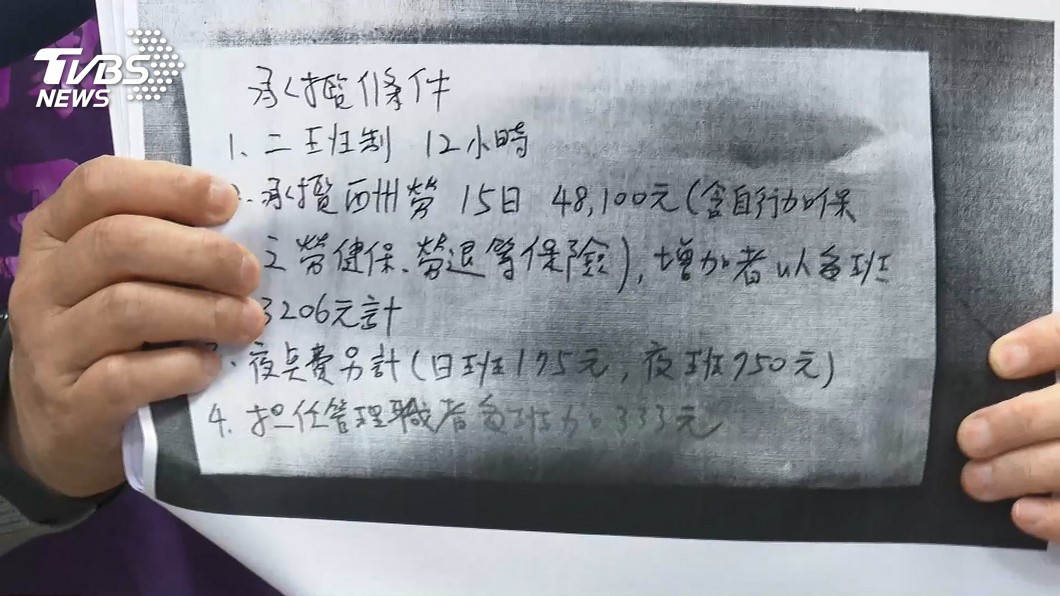 TVBS
NEWS
承攬條件
1. 二班制 12小時
承攬酬勞 15日 48,100元(含自行加保
之勞健保、勞退等保險),增加者以每班
3206元計
夜點費另計(日班175元,夜班750元)
4. 担任管理職者每班加333元